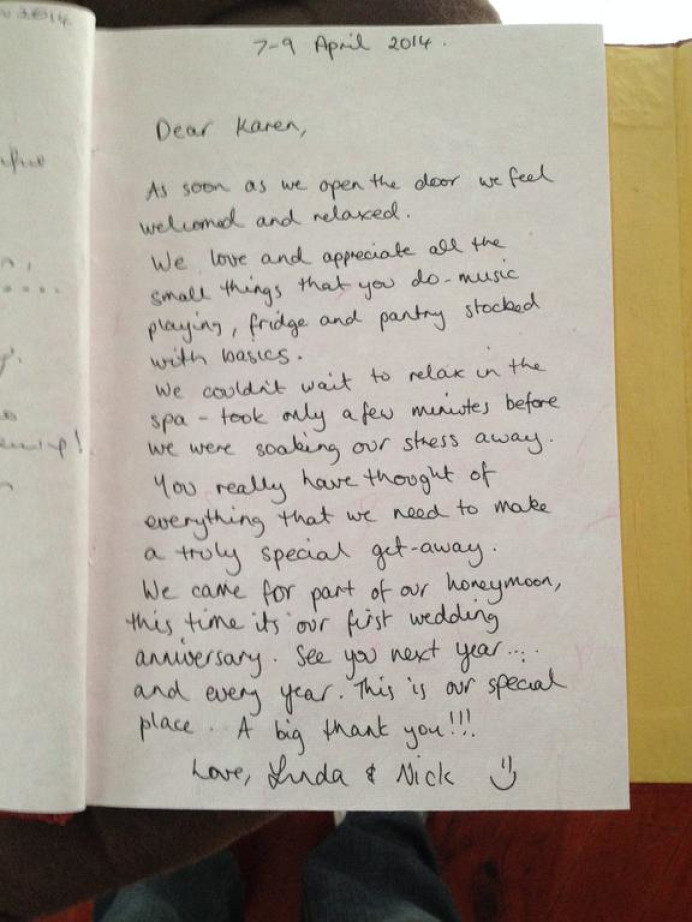 2014
7-9 April 2014.
Dear Karen,
As soon as we open the door we feel
welcomed and relaxed.
We love and appreciate all the
small things that you do - music
playing, fridge and pantry stocked
with basics.
We couldn't wait to relax in the
spa - took only a few minutes before
we were soaking our stress away.
You really have thought of
everything that we need to make
a truly special get-away.
We came for part of our honeymoon,
this time its our first wedding
anniversary. See you next year....
and every year. This is our special
place. A big thank you!!!
Love, Linda & Nick